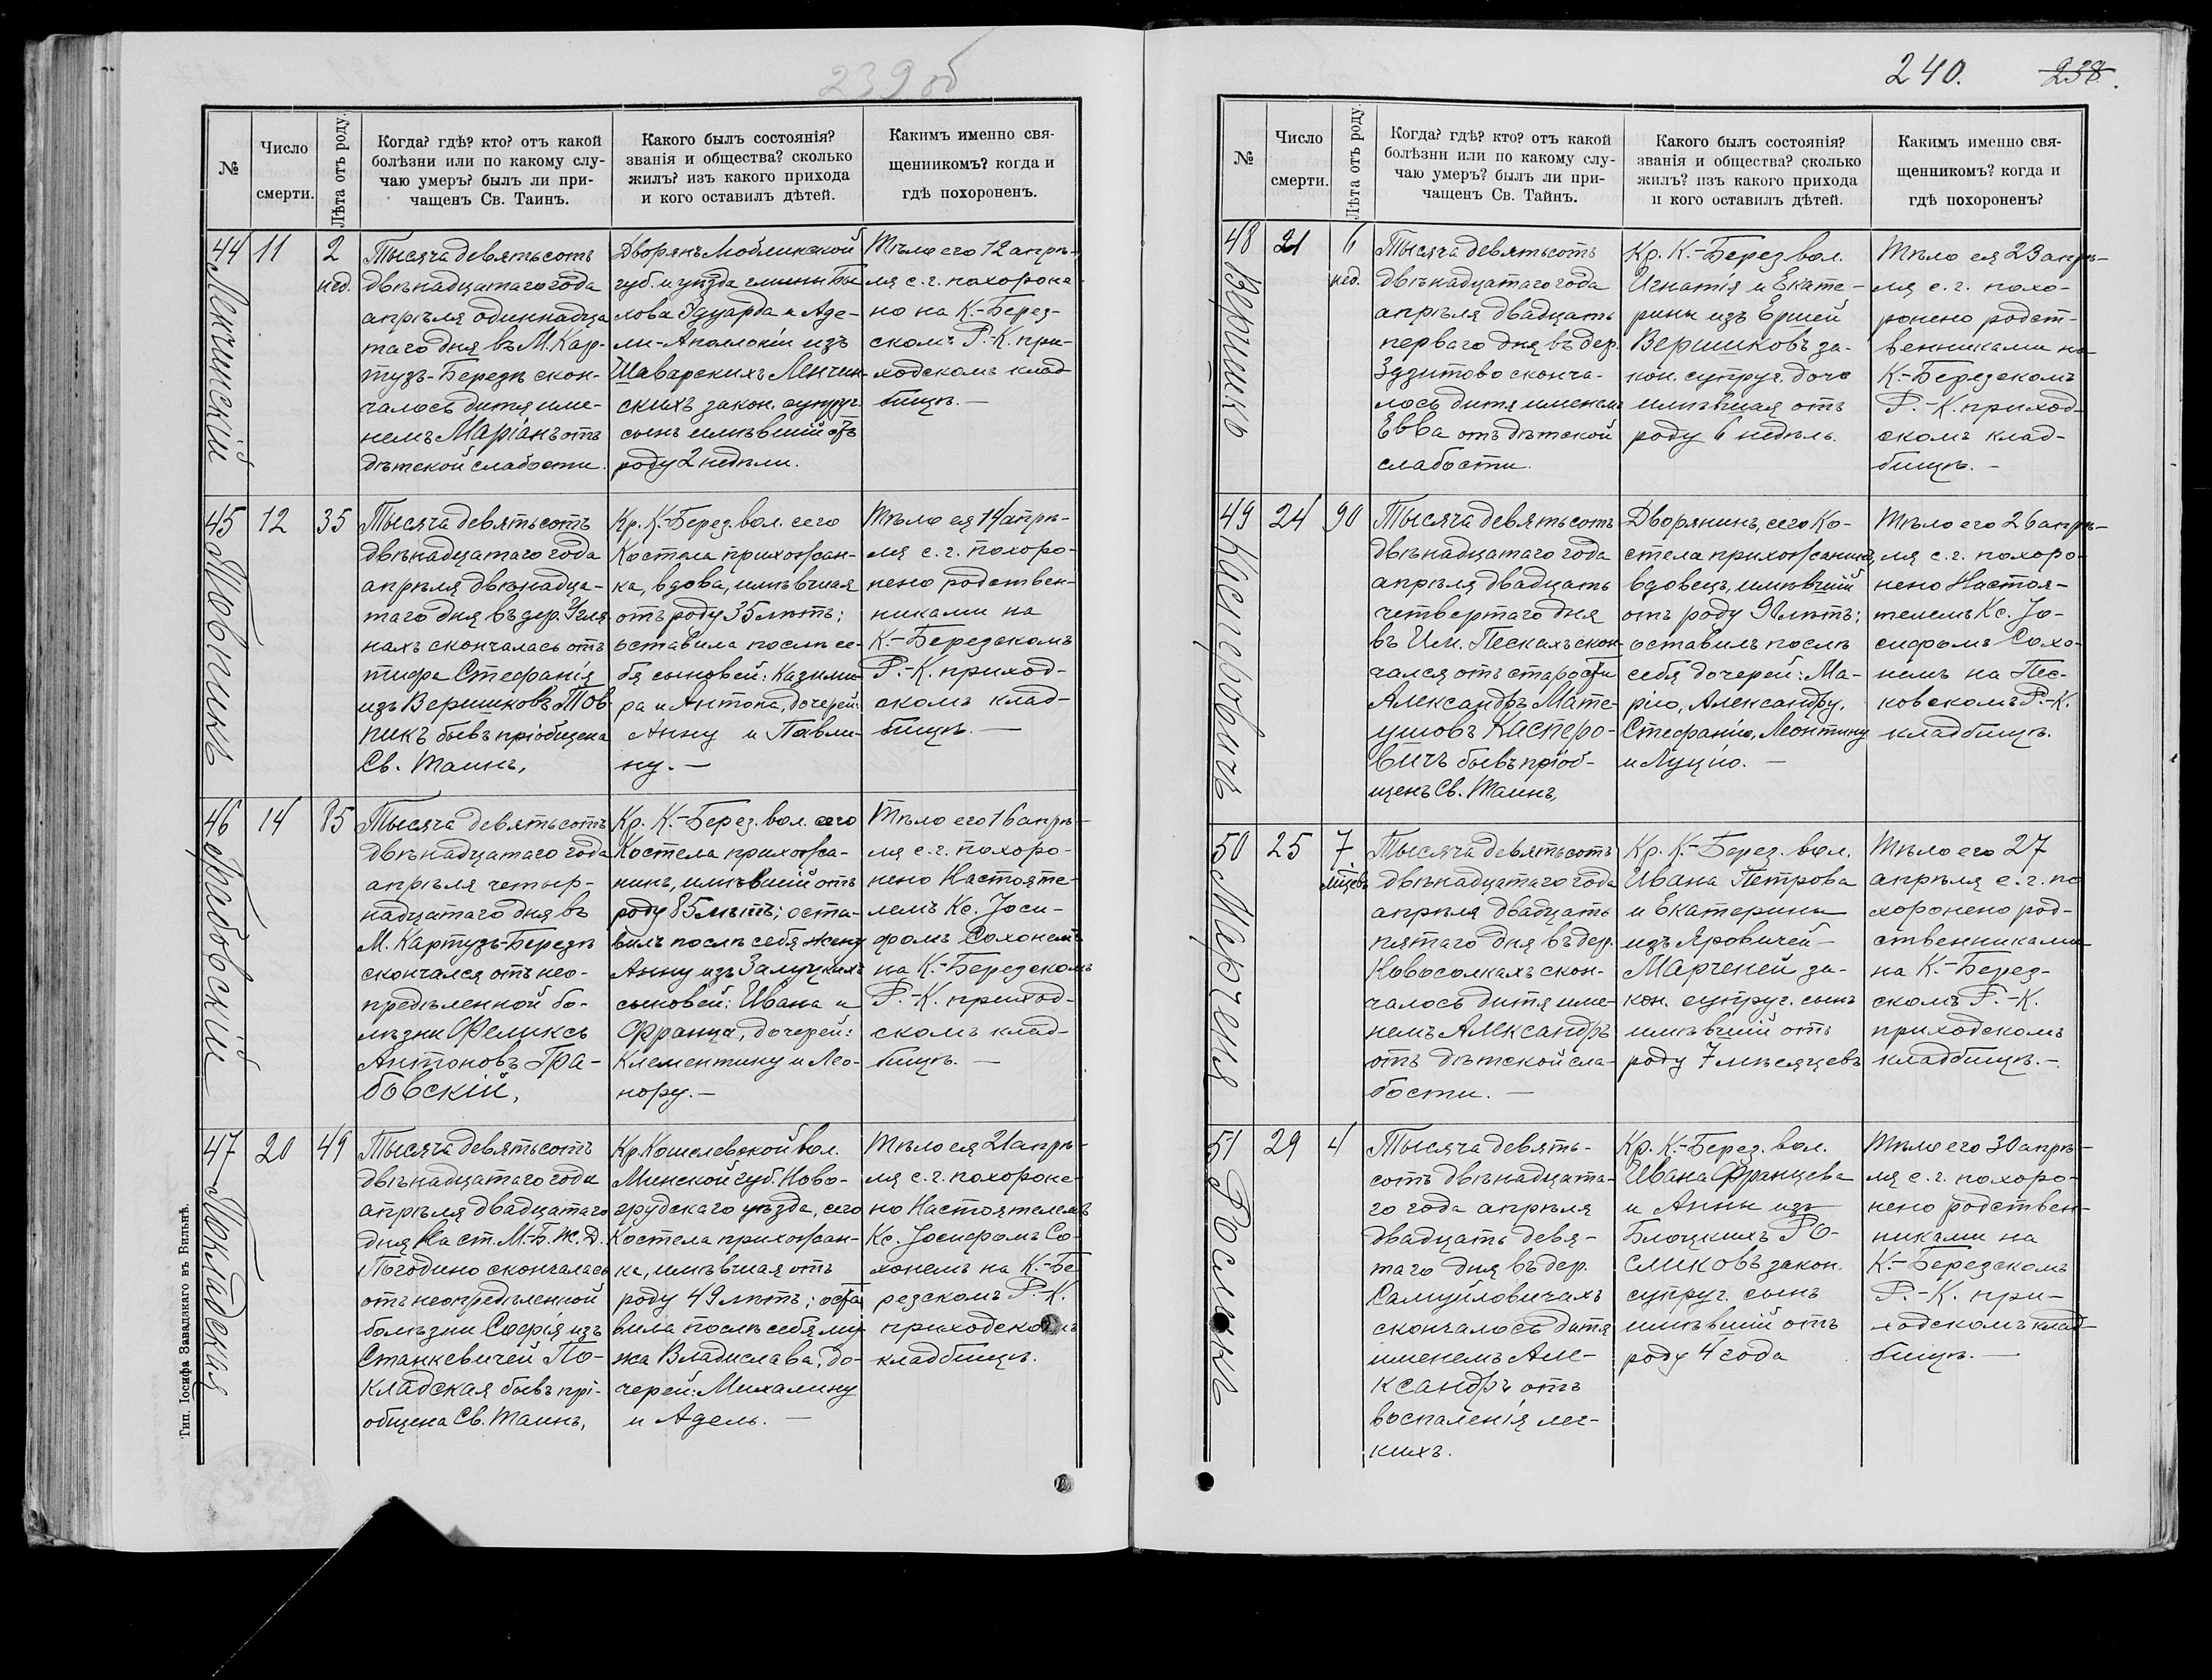 239 об
№
Число
смерти.
Лѣта отъ роду.
Когда? гдѣ? кто? отъ какой
болѣзни или по какому слу-
чаю умеръ? былъ ли при-
чащенъ Св. Таинъ.
Какого былъ состоянія?
званія и общества? сколько
жилъ? изъ какого прихода
и кого оставилъ дѣтей.
Какимъ именно свя-
щенникомъ? когда и
гдѣ похороненъ.
44
Ленчинскій
11
2
нед.
Тысяча девятьсотъ
двѣнадцатаго года
апрѣля одиннадца
таго дня въ М. Кар-
тузъ-Березѣ скон-
чалось дитя име-
немъ Маріанъ отъ
дѣтской слабости.
Дворянъ Люблинской
губ. и уѣзда гмины Бы
хова Эдуарда и Аде-
ли-Аполлоніи изъ
Шаварскихъ Ленчин-
скихъ закон. супруг.
сынъ имѣвшій отъ
роду 2 недѣли.
Тѣло его 12 апрѣ-
ля с. г. похороне-
но на К.-Берез-
скомъ Р.-К. при-
ходскомъ клад-
бищѣ.—
45
Товпикъ
12
35
Тысяча девятьсотъ
двѣнадцатаго года
апрѣля двѣнадца-
таго дня въ дер. Угля
нахъ скончалась отъ
тифа Стефанія
изъ Вершиковъ Тов
пикъ бывъ пріобщена
Св. Таинъ,
Кр. К.-Берез. вол. сего
Костела прихожан-
ка, вдова, имѣвшая
отъ роду 35 лѣтъ;
оставила послѣ се-
бя сыновей: Казими-
ра и Антона, дочерей:
Анну и Павли-
ну.—
Тѣло ея 14 апрѣ-
ля с. г. похоро-
нено родствен-
никами на
К.-Березскомъ
Р.-К. приход-
скомъ клад-
бищѣ.—
46
Грабовскій
14
85
Тысяча девятьсотъ
двѣнадцатаго года
апрѣля четыр-
надцатаго дня въ
М. Картузъ-Березѣ
скончался отъ нео-
предѣленной бо-
лѣзни Феликсъ
Антоновъ Гра-
бовскій,
Кр. К.-Берез. вол. сего
Костела прихожа-
нинъ, имѣвшій отъ
роду 85 лѣтъ; оста-
вилъ послѣ себя жену
Анну изъ Залуцкихъ
сыновей: Ивана и
Франца, дочерей:
Клементину и Лео-
нору.—
Тѣло его 16 апрѣ-
ля с. г. похоро-
нено Настояте-
лемъ Кс. Іоси-
фомъ Сохонемъ
на К.-Березскомъ
Р.-К. приход-
скомъ клад-
бищѣ.—
47
Покладская
20
49
Тысяча девятьсотъ
двѣнадцатаго года
апрѣля двадцатаго
дня на ст. М.-Б. Ж. Д.
Погодино скончалась
отъ неопредѣленной
болѣзни Софія изъ
Станкевичей По-
кладская бывъ прі-
общена Св. Таинъ,
Кр. Кошелевской вол.
Минской губ. Ново-
грудскаго уѣзда, сего
Костела прихожан-
ка, имѣвшая отъ
роду 49 лѣтъ; оста
вила послѣ себя му-
жа Владислава, до-
черей: Михалину
и Адель.—
Тѣло ея 21 апрѣ-
ля с. г. похороне-
но Настоятелемъ
Кс. Іосифомъ Со-
хонемъ на К.-Бе
резскомъ Р.-К.
приходскомъ
кладбищѣ.
Тип. Іосифа Завадзкаго въ Вильнѣ.
240.
238.
№
Число
смерти.
Лѣта отъ роду.
Когда? гдѣ? кто? отъ какой
болѣзни или по какому слу-
чаю умеръ? былъ ли при-
чащенъ Св. Тайнъ.
Какого былъ состоянія?
званія и общества? сколько
жилъ? изъ какого прихода
и кого оставилъ дѣтей.
Какимъ именно свя-
щенникомъ? когда и
гдѣ похороненъ?
48
Вершикъ
21
6
нед.
Тысяча девятьсотъ
двѣнадцатаго года
апрѣля двадцать
перваго дня въ дер.
Здзитово сконча-
лось дитя именемъ
Евва отъ дѣтской
слабости.
Кр. К.-Берез вол.
Игнатія и Екате-
рины изъ Ершей
Вершиковъ за-
кон. супруг. дочь
имѣвшая отъ
роду 6 недѣль.
Тѣло ея 23 апрѣ-
ля с. г. похо-
ронено родст-
венниками на
К.-Березскомъ
Р.-К. приход-
скомъ клад-
бищѣ.—
49
Касперовичъ
24
90
Тысяча девятьсотъ
двѣнадцатаго года
апрѣля двадцать
четвертаго дня
въ Им. Пескахъ скон-
чался отъ старости
Александръ Мате-
ушовъ Касперо-
вичъ бывъ пріоб-
щенъ Св. Таинъ,
Дворянинъ, сего Ко-
стела прихожанинъ,
вдовецъ, имѣвшій
отъ роду 90 лѣтъ;
оставилъ послѣ
себя дочерей: Ма-
рію, Александру,
Стефанію, Леонтину
и Луцію.—
Тѣло его 26 апрѣ-
ля с. г. похоро-
нено Настоя-
телемъ Кс. Іо-
сифомъ Сохо-
немъ на Пес-
ковскомъ Р.-К.
кладбищѣ.
50
Марченя
25
7
мѣсцевъ
Тысяча девятьсотъ
двѣнадцатаго года
апрѣля двадцать
пятаго дня въ дер.
Новоселкахъ скон-
чалось дитя име-
немъ Александръ
отъ дѣтской сла-
бости.—
Кр. К.-Берез. вол.
Ивана Петрова
и Екатерины
изъ Яровичей-
Марченей за-
кон. супруг. сынъ
имѣвшій отъ
роду 7 мѣсяцевъ
Тѣло его 27
апрѣля с. г. по
хоронено род-
ственниками
на К.-Берез-
скомъ Р.-К.
приходскомъ
кладбищѣ.—
51
Рослик
29
4
Тысяча девять-
сотъ двѣнадцата-
го года апрѣля
двадцать девя-
таго дня въ дер.
Самуйловичахъ
скончалось дитя
именемъ Але-
ксандръ отъ
воспаленія лег-
кихъ.
Кр. К.-Берез. вол.
Ивана Францева
и Анны изъ
Блоцкихъ Ро-
сликовъ закон.
супруг. сынъ
имѣвшій отъ
роду 4 года
Тѣло его 30 апрѣ-
ля с. г. похоро-
нено родствен-
никами на
К.-Березскомъ
Р.-К. при-
ходскомъ клад-
бищѣ.—